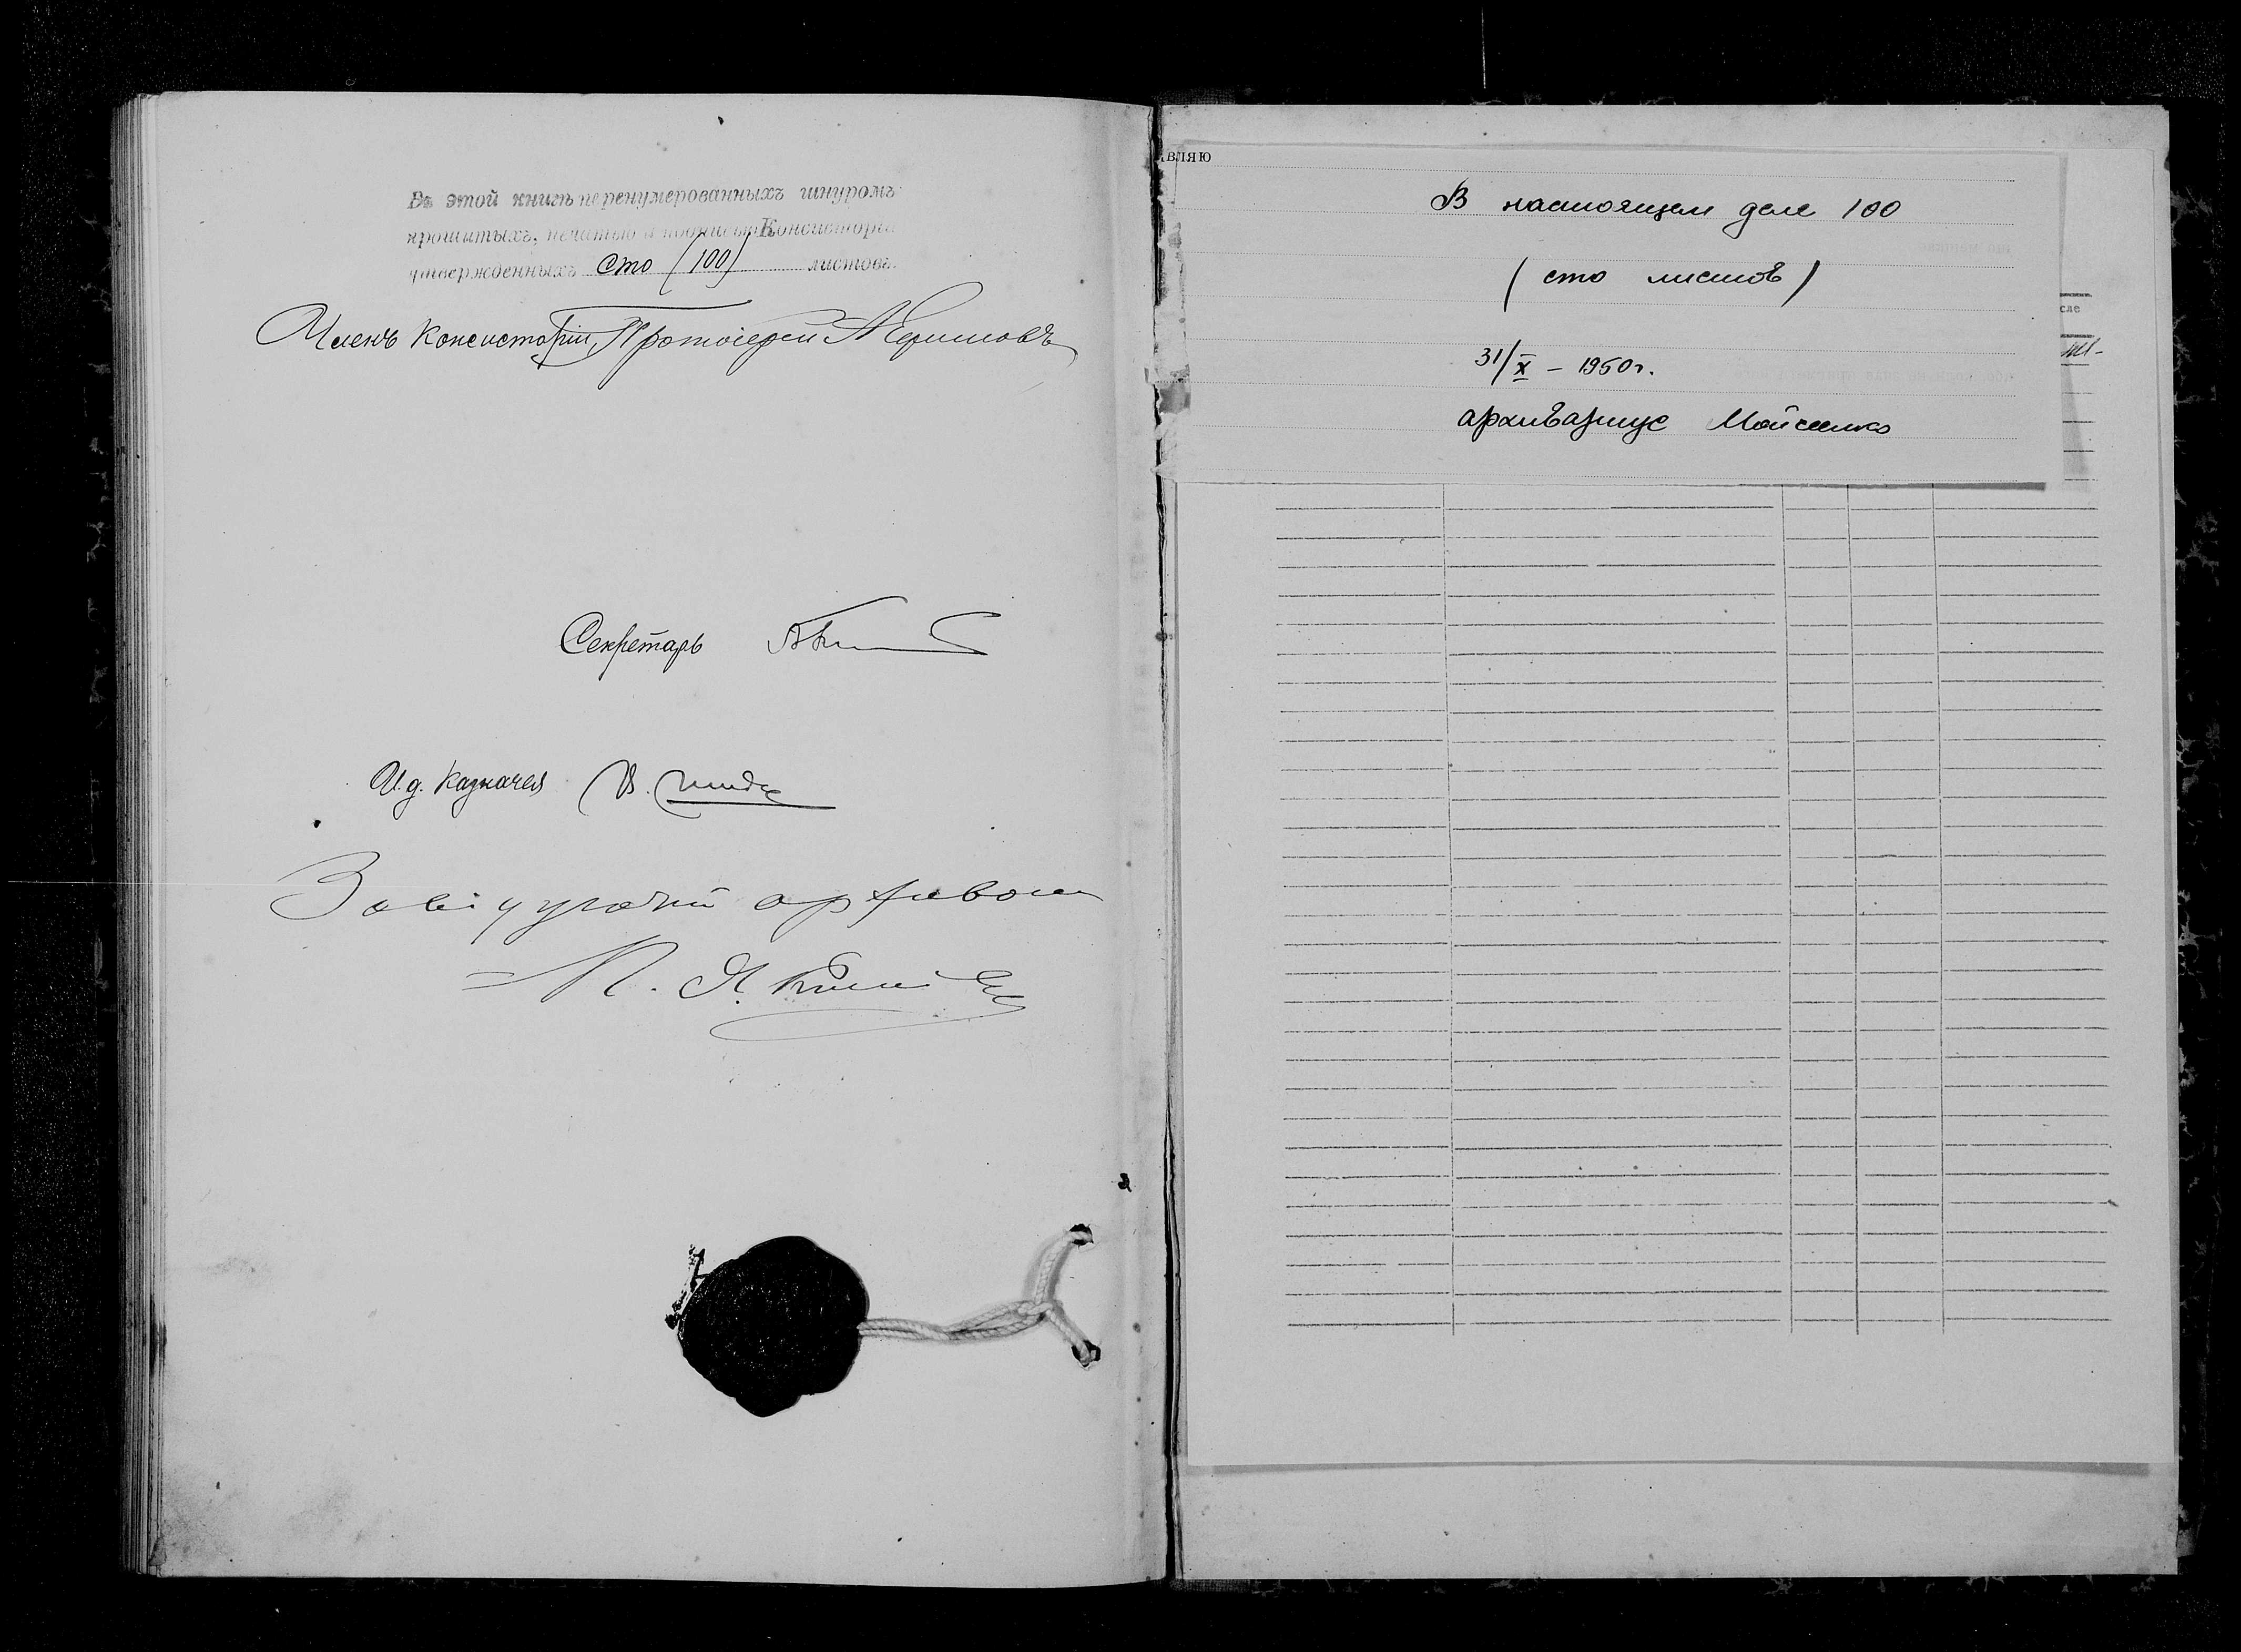 Въ этой книгѣ перенумерованныхъ шнуромъ
прошитыхъ, печатью и подписью Консисторіи
утвержденныхъ сто (100) листовъ
Членъ Консисторіи, Протоіерей
Секретарь
И. д. Казначея В.
Завідуючий архівом
вляю
В настоящем деле 100
(сто листов)
31/X – 1950г.
архивариус Мойсеенко
сле